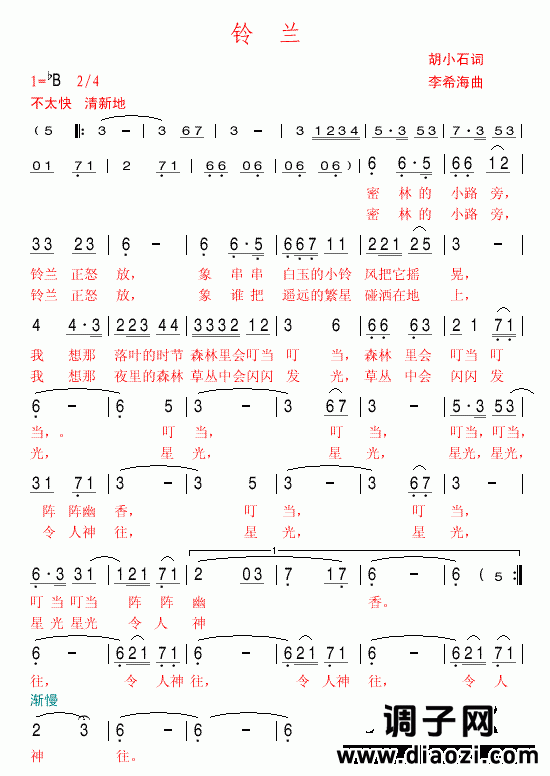 铃 兰
胡小石词
1=♭B 2/4
李希海曲
不太快 清新地
( 5 𝄆 3 - 3 67 3 - 3 - 3 1234 5·3 53 7·3 53
01 71 2 71 66 06 06 06 ) 6 6·5 66 12
密 林的 小路 旁,
密 林的 小路 旁,
33 23 6 - 6 6·5 667 11 221 25 3 -
铃兰 正怒 放, 象 串串 白玉的小铃 风把它摇 晃,
铃兰 正怒 放, 象 谁把 遥远的繁星 碰洒在地 上,
4 4·3 223 44 3332 12 3 6 66 63 21 71
我 想那 落叶的时节 森林里会叮当 叮 当, 森林 里会 叮当 叮
我 想那 夜里的森林 草丛中会闪闪 发 光, 草丛 中会 闪闪 发
6 - 6 - 6 5 3 - 3 67 3 - 5·3 53
当,。 叮 当, 叮 当, 叮当, 叮当,
光, 星 光, 星 光, 星光, 星光,
31 71 3 - 3 - 3 5 3 - 3 67 3 -
阵 阵幽 香, 叮 当, 叮 当,
令 人神 往, 星 光, 星 光,
1
6·3 31 121 71 2 03 7 17 6 - 6 ( 5 :𝄇
叮 当 叮当 阵 阵 幽 香。
星 光 星光 令 人 神
6 - 6 - 621 71 6 - 6 - 621 71
往, 令 人神 往, 令人神 往, 令 人
渐慢
2 3 6 - 6 -
神 往。
调子网
www.diaozi.com